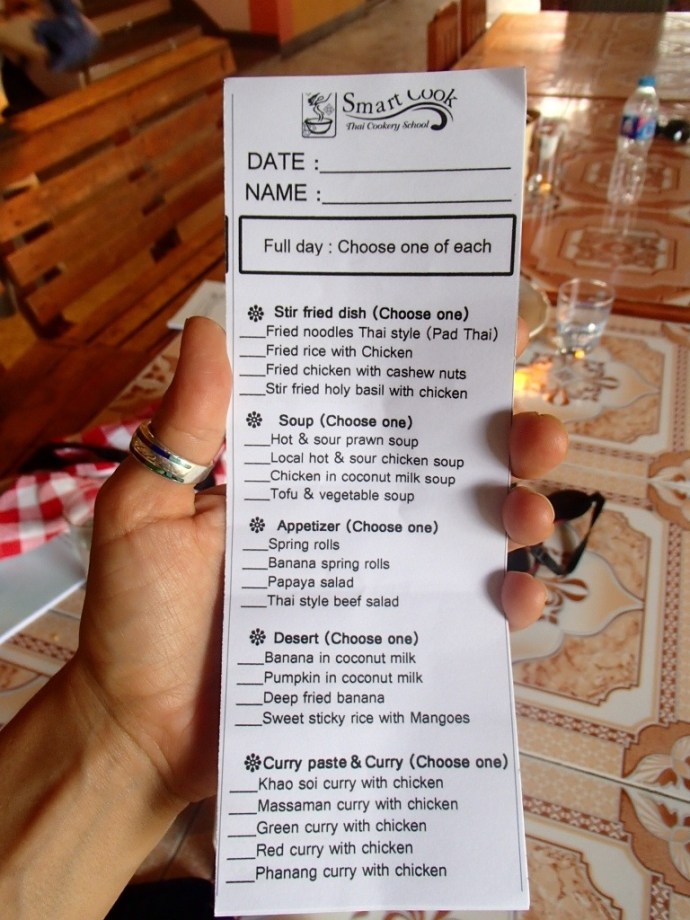 Smart Cook
Thai Cookery School
DATE :
NAME :
Full day : Choose one of each
Stir fried dish (Choose one)
___Fried noodles Thai style (Pad Thai)
___Fried rice with Chicken
___Fried chicken with cashew nuts
___Stir fried holy basil with chicken
Soup (Choose one)
___Hot & sour prawn soup
___Local hot & sour chicken soup
___Chicken in coconut milk soup
___Tofu & vegetable soup
Appetizer (Choose one)
___Spring rolls
___Banana spring rolls
___Papaya salad
___Thai style beef salad
Desert (Choose one)
___Banana in coconut milk
___Pumpkin in coconut milk
___Deep fried banana
___Sweet sticky rice with Mangoes
Curry paste & Curry (Choose one)
___Khao soi curry with chicken
___Massaman curry with chicken
___Green curry with chicken
___Red curry with chicken
___Phanang curry with chicken